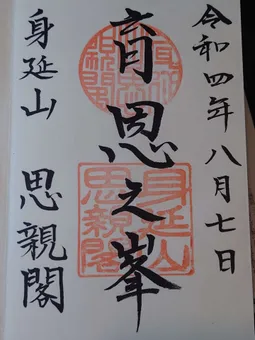 令和四年八月七日
育恩之峯
身延山 思親閣
身延山
思親閣